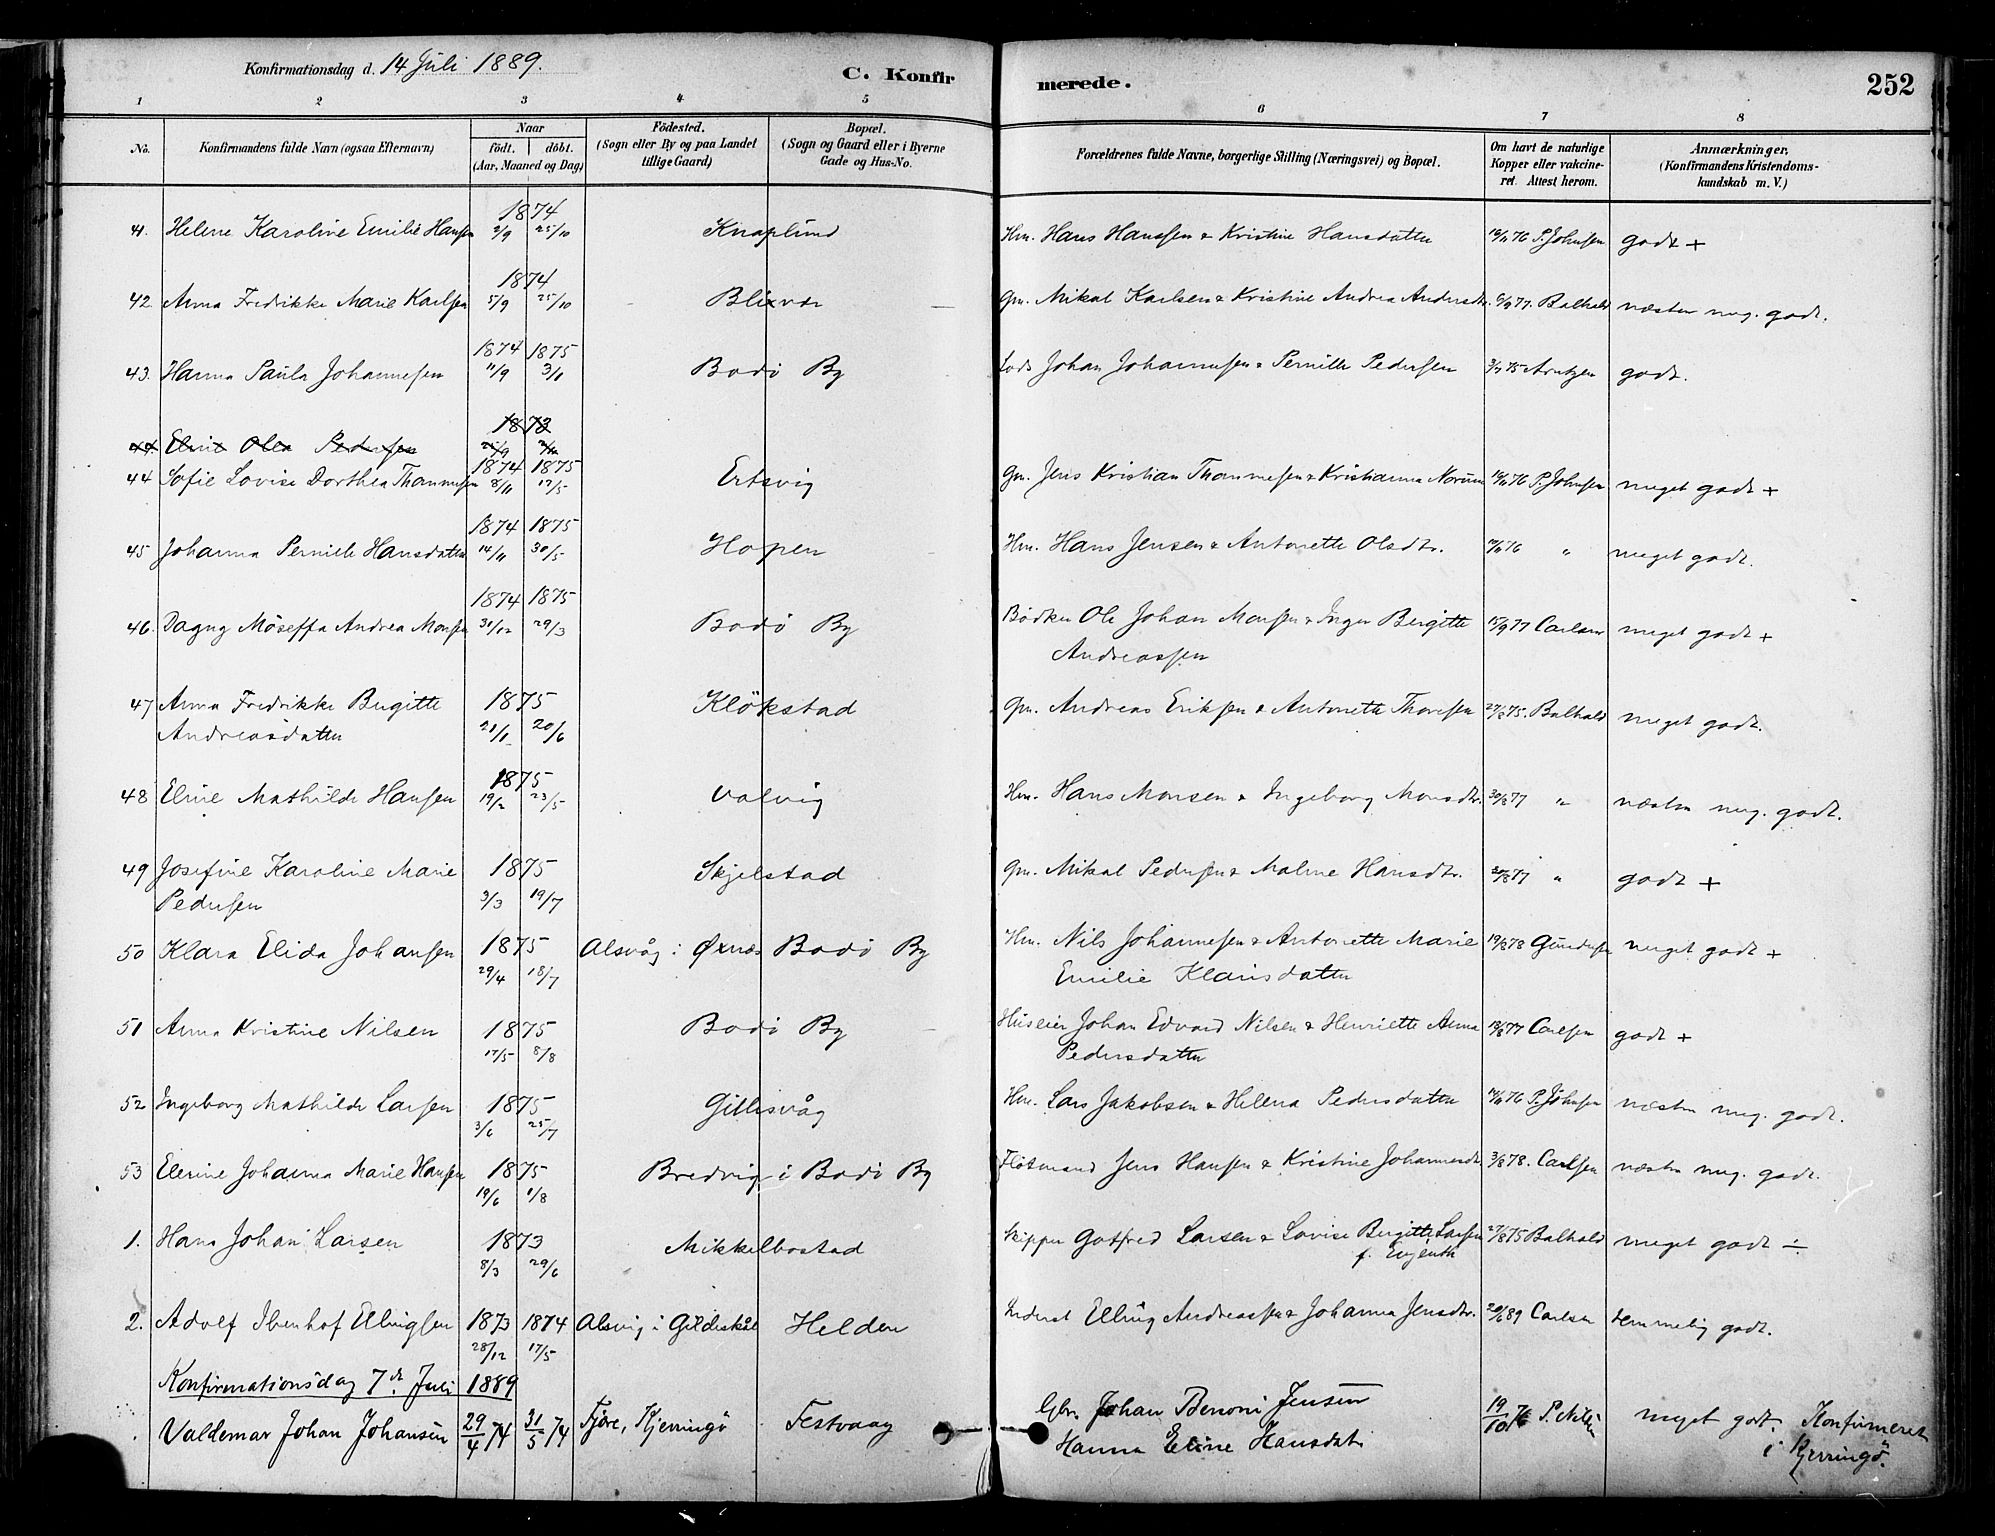 Konfirmationsdag d. 14 Juli 1889.
C. Konfirmerede.
252
1 2 3 4 5 6 7 8
No. Konfirmandens fulde Navn (ogsaa Efternavn) Naar født. døbt. (Aar, Maaned og Dag) Födested. (Sogn eller By og paa Landet tillige Gaard) Bopæl. (Sogn og Gaard eller i Byerne Gade og Hus-No. Forældrenes fulde Navne, borgerlige Stilling (Næringsvei) og Bopæl. Om havt de naturlige Kopper eller vakcineret. Attest herom. Anmærkninger, (Konfirmandens Kristendomskundskab m. V.)
41. Helene Karoline Emilie Hansen 1874 2/9 25/10 Knaplund Hm. Hans Hanssen & Kristine Hansdatter 19/11 76 P. Johnsen godt +
42 Anna Fredrikke Marie Karlsen 1874 5/9 25/10 Blixvær Gm. Mikal Karlsen & Kristine Andrea Andersdtr. 6/9 77. Balhald næsten meg. godt.
43. Hanna Paula Johannesen 1874 11/9 1875 3/1 Bodö By Lods Johan Johannesen & Pernille Pedersen 3/7 75 Arntzen godt.
44 Eline Olea Pedersen 1873
44 Sofie Lovise Dorthea Thommesen 1874 8/11 1875 17/5 Ertsvig Gm. Jens Kristian Thommesen & Kristianna Norum 19/11 76 P. Johnsen meget godt +
45 Johanna Pernille Hansdatter 1874 14/11 1875 30/5 Hopen Hm. Hans Jensen & Antonette Olsdtr. 19/11 76 " meget godt.
46. Dagny Möseffa Andrea Monsen 1874 31/12 1875 29/3 Bodö By Bödker Ole Johan Monsen & Inger Birgitte Andreassen 15/9 77 Carlsen meget godt +
47 Anna Fredrikke Birgitte Andreasdatter 1875 21/1 20/6 Klökstad Gm. Andreas Eriksen & Antonette Thoresen 27/8 75. Balhald meget godt.
48 Eline Mathilde Hansen 1875 19/2 23/5 Valvig Hm. Hans Monsen & Ingeborg Monsdtr. 30/8 77 " næsten meg. godt.
49 Josefine Karoline Marie Pedersen 1875 3/3 19/7 Skjelstad Gm. Mikal Pedersen & Maline Hansdtr. 30/8 77 " godt +
50 Klara Elida Johansen 1875 29/4 18/7 Alsvåg i Øxnæs Bodö By Hm. Nils Johannesen & Antonette Marie Emilie Klausdatter 19/8 78 Gundersen meget godt +
51 Anna Kristine Nilsen 1875 17/5 8/8 Bodö By Huseier Johan Edvard Nilsen & Henriette Anna Pedersdatter 13/8 77 Carlsen godt +
52 Ingeborg Mathilde Larsen 1875 3/6 25/7 Gillisvåg Hm. Lars Jakobsen & Helena Pedersdatter 19/11 76 P. Johnsen næsten meg. godt.
53 Elerine Johanna Marie Hansen 1875 19/6 1/8 Bredvig i Bodö By Flötmand Jens Hansen & Kristine Johannesdtr. 3/8 78. Carlsen næsten meg. godt.
1. Hans Johan Larsen 1873 8/3 29/6 Mikkelbostad Skipper Gotfred Larsen & Lovise Birgitte Larsen f. Eugenth 27/8 75 Balhald meget godt ÷
2. Adolf Ibenhof Ellingsen 1873 28/12 1874 17/5 Alsvig i Gildeskål Helden Inderst Elling Andreassen & Johanna Jensdtr. 20/6 89 Carlsen temmelig godt.
Konfirmationsdag 7de Juli 1889
Valdemar Johan Johansen 29/4 74 31/5 74 Fjöre, Kjerringö Festvaag Gbr. Johan Benoni Jensen Hanna Eline Hansdat. 19/10 76 P. meget godt. Konfirmeret i Kjerringö.